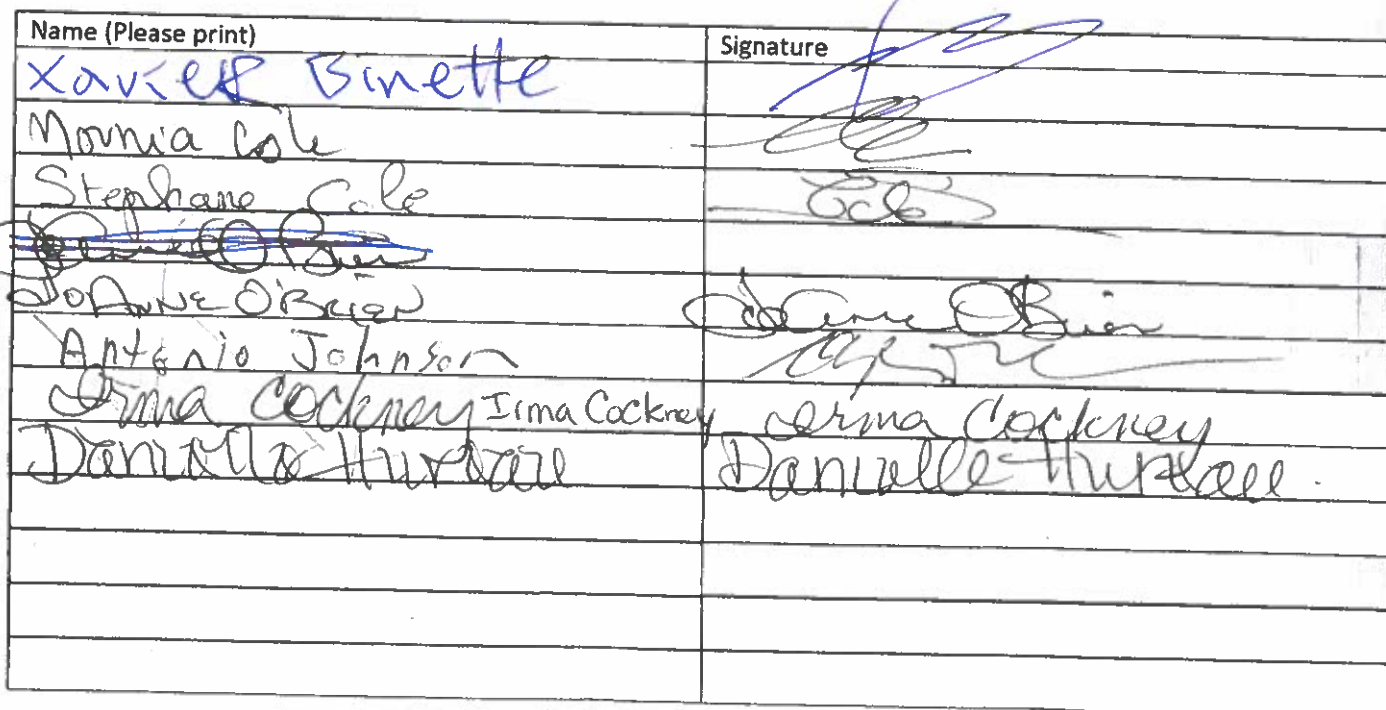 Name (Please print) Signature
Xavier Binette
Mounia Cole
Stephane Cole Cole
JoAnne O'Brien JoAnne O'Brien
Antonio Johnson
Irma Cockney Irma Cockney Irma Cockney
Danielle Hurteau Danielle Hurteau